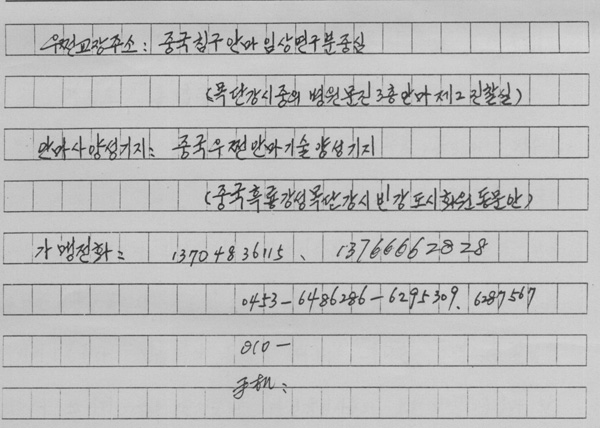 우전교장주소: 중국침구안마임상연구분중심
(목단강시중의병원문진3층안마제2진찰실)
안마사양성기지: 중국우전안마기술양성기지
(중국흑룡강성목단강시빈강도시화원동문안)
가맹전화: 13704836115、13766662828
0453-6486286-6295309.6287567
010-